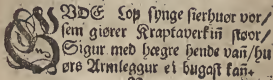 GUDE Lof synge sierhuør vor/
sem giører Kraptaverkin støor/
Sigur med hægre hende vañ/ hu
ørs Armleggur ei bugast kañ.